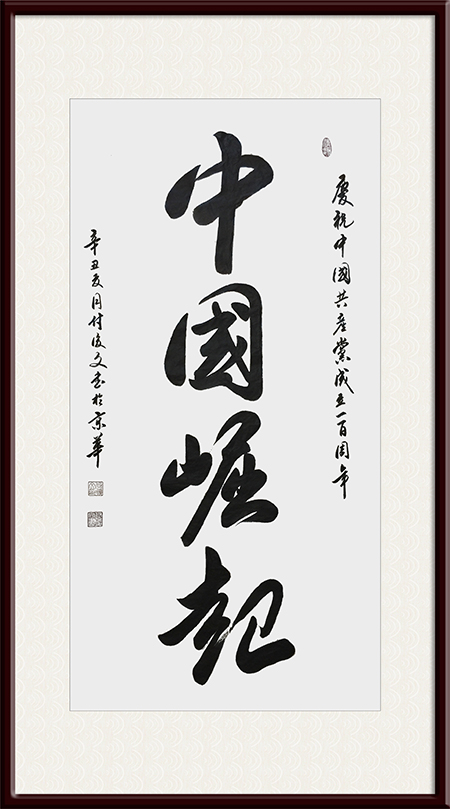 慶祝中國共產黨成立一百周年
中國崛起
辛丑夏月付文书於京華